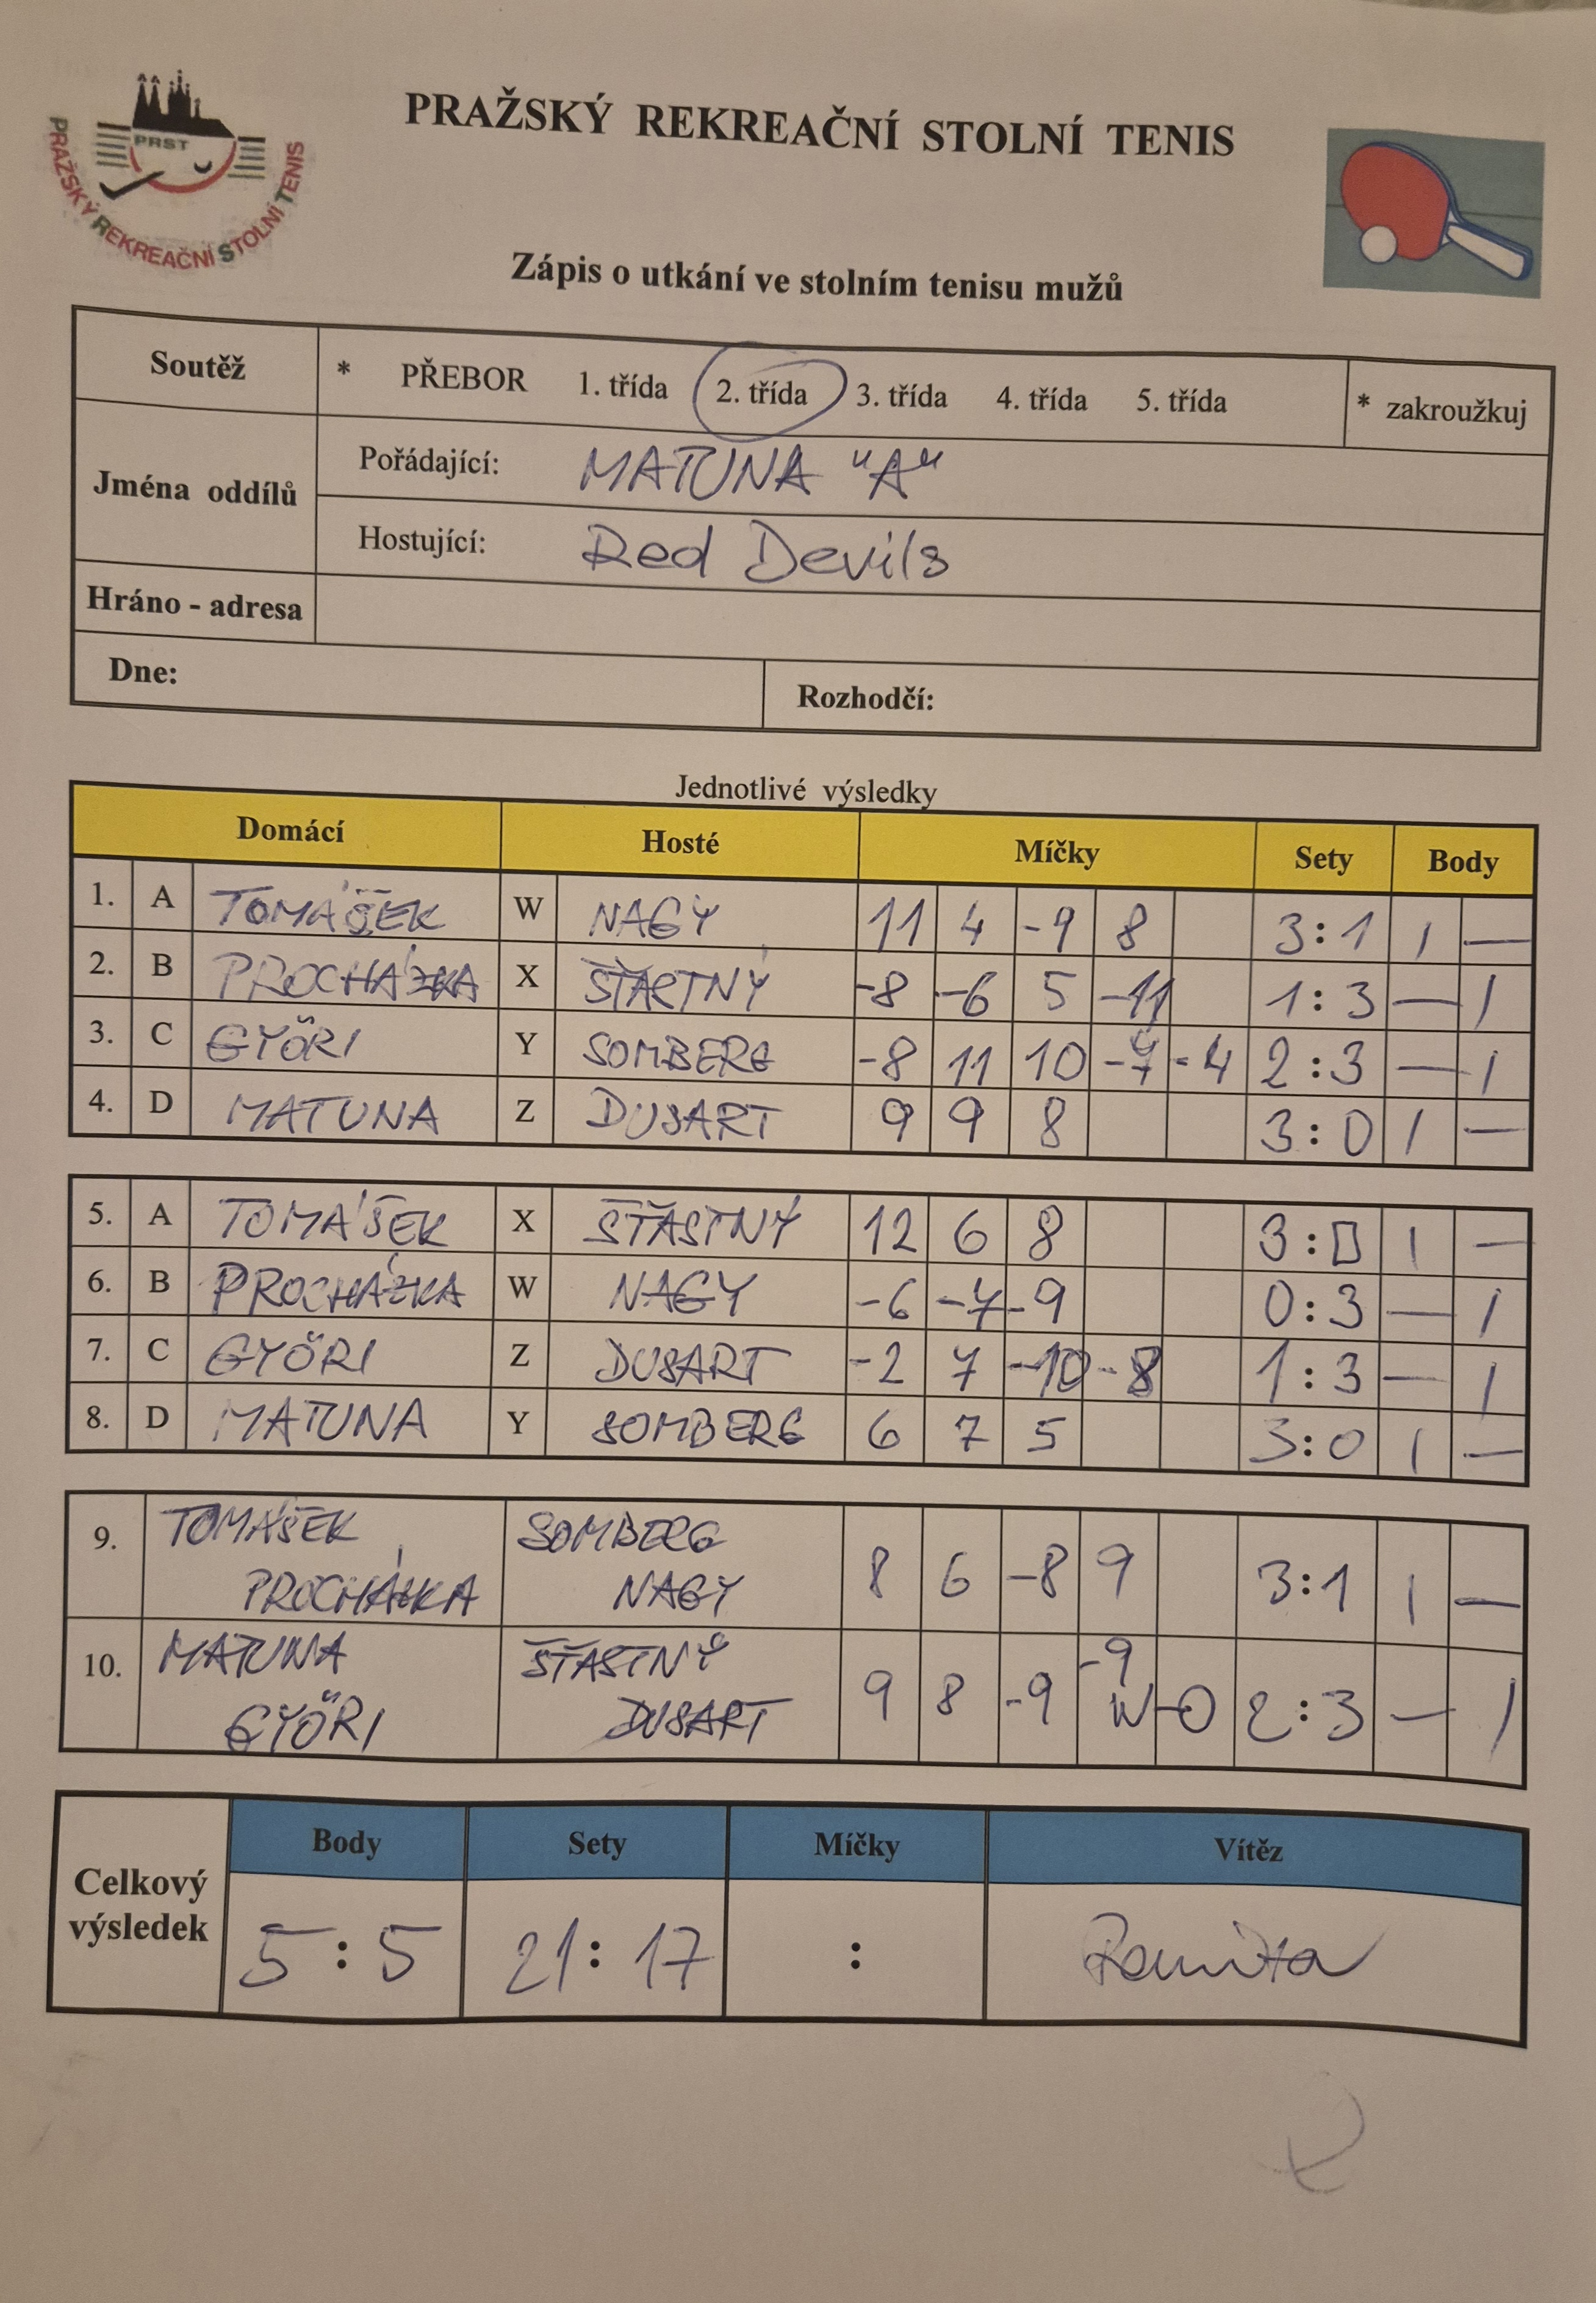 PRAŽSKÝ REKREAČNÍ STOLNÍ TENIS
PRST
PRAŽSKÝ REKREAČNÍ STOLNÍ TENIS
Zápis o utkání ve stolním tenisu mužů
Soutěž * PŘEBOR 1. třída 2. třída 3. třída 4. třída 5. třída * zakroužkuj
Jména oddílů
Pořádající: MATUNA "A"
Hostující: Red Devils
Hráno - adresa
Dne: Rozhodčí:
Jednotlivé výsledky
Domácí Hosté Míčky Sety Body
1. A TOMÁŠEK W NAGY 11 4 -9 8 3:1 1 —
2. B PROCHÁZKA X ŠŤASTNÝ -8 -6 5 -11 1:3 — 1
3. C GYŐRI Y SOMBERG -8 11 10 -4 2:3 — 1
4. D MATUNA Z DUSART 9 9 8 3:0 1 —
5. A TOMÁŠEK X ŠŤASTNÝ 12 6 8 3:0 1 —
6. B PROCHÁZKA W NAGY -6 -7 -9 0:3 — 1
7. C GYŐRI Z DUSART -2 7 -10 -8 1:3 — 1
8. D MATUNA Y SOMBERG 6 7 5 3:0 1 —
9. TOMÁŠEK SOMBERG
PROCHÁZKA NAGY 8 6 -8 9 3:1 1 —
10. MATUNA ŠŤASTNÝ -9
GYŐRI DUSART 9 8 -9 W -0 2:3 — 1
Celkový výsledek
Body Sety Míčky Vítěz
5:5 21:17 : Remíza